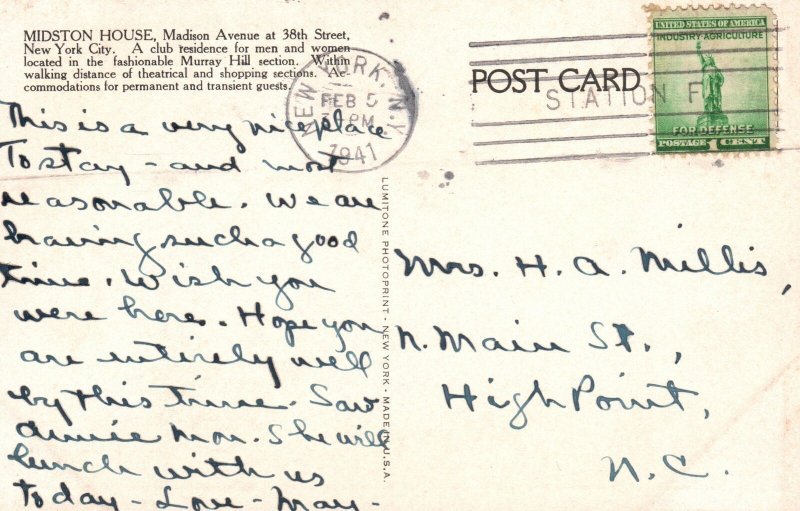 MIDSTON HOUSE, Madison Avenue at 38th Street,
New York City. A club residence for men and women
located in the fashionable Murray Hill section. Within
walking distance of theatrical and shopping sections. Ac-
commodations for permanent and transient guests.
This is a very nice place
To stay - and most
reasonable. We are
having such a good
time. Wish you
were here. Hope you
are entirely well
by this time. Saw
Annie Mon. She will
lunch with us
today - Love - May -
LUMITONE PHOTOPRINT - NEW YORK - MADE IN U.S.A.
NEW YORK, N.Y.
FEB 5
PM
1941
POST CARD
STATION F
UNITED STATES OF AMERICA
INDUSTRY AGRICULTURE
FOR DEFENSE
POSTAGE 1 CENT
Mrs. H. A. Millis,
N. Main St.,
High Point,
N.C.